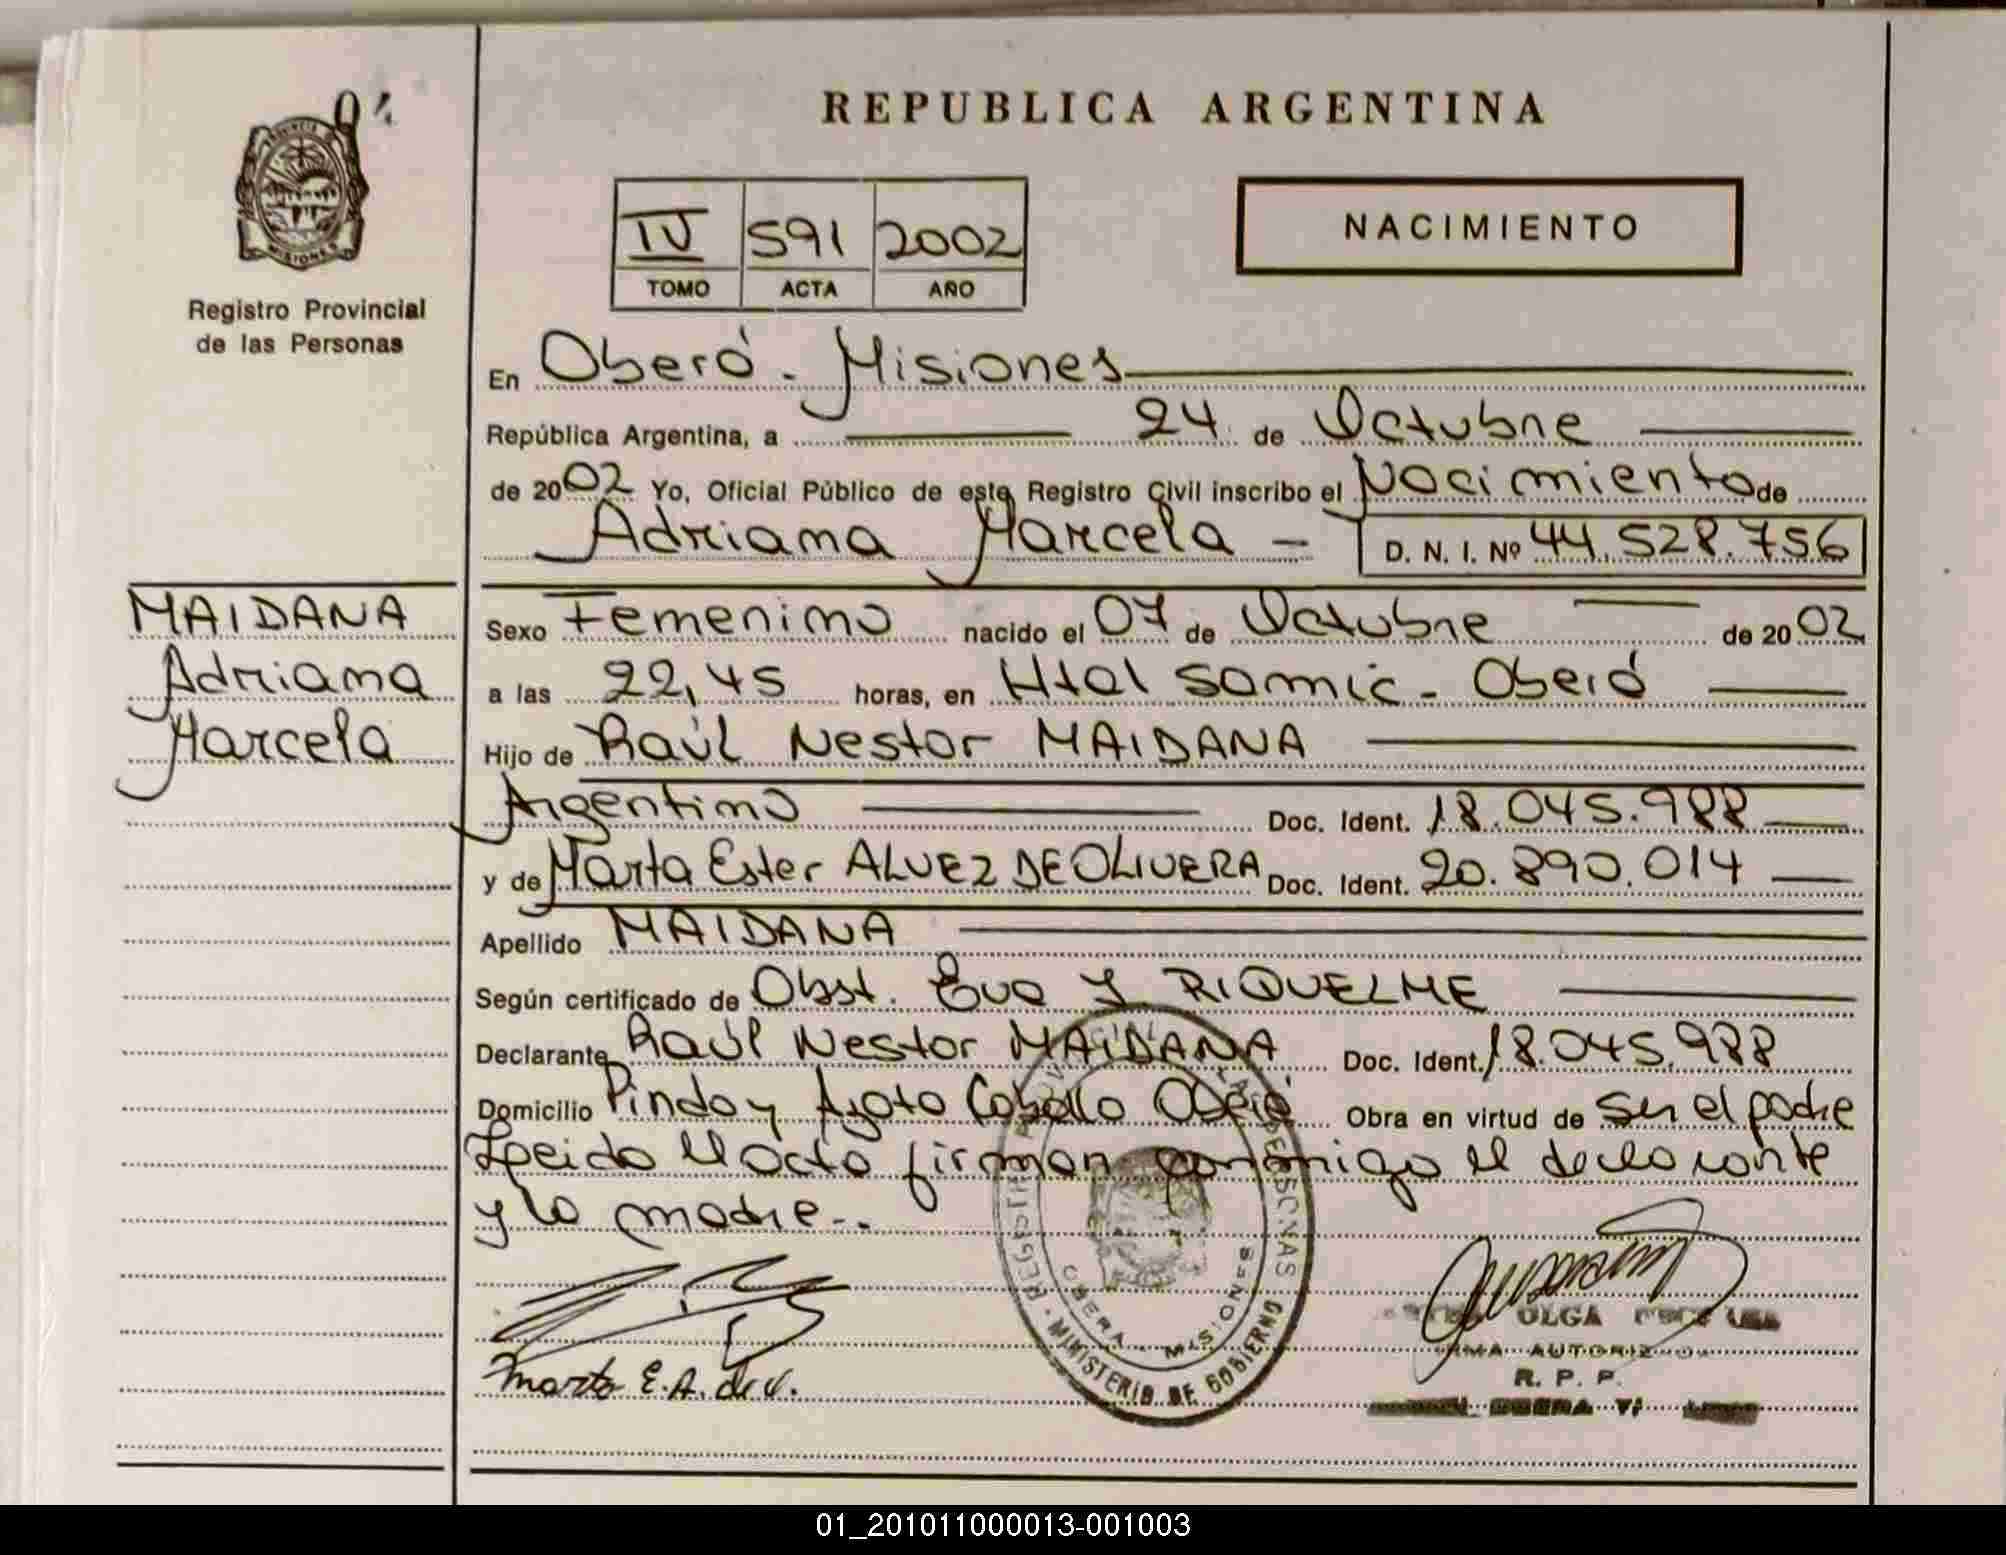 04
PROVINCIA DE
MISIONES
Registro Provincial
de las Personas
REPUBLICA ARGENTINA
IV 591 2002
TOMO ACTA AÑO
NACIMIENTO
En Oberá - Misiones
República Argentina, a 24 de Octubre
de 2002 Yo, Oficial Público de este Registro Civil inscribo el Nacimiento de
Adriana Marcela - D. N. I. Nº 44.528.756
MAIDANA
Adriana
Marcela
Sexo Femenino nacido el 07 de Octubre de 2002
a las 22,45 horas, en Htal Samic - Oberá
Hijo de Raúl Nestor MAIDANA
Argentino Doc. Ident. 18.045.988
y de Marta Ester ALVEZ DE OLIVERA Doc. Ident. 20.890.014
Apellido MAIDANA
Según certificado de Obst. Eva Y RIQUELME
Declarante Raúl Nestor MAIDANA Doc. Ident. 18.045.988
Domicilio Pindo y Azoto Caballo Oberá Obra en virtud de ser el padre
Leida el acta firman conmigo el declarante
y la madre-.
REGISTRO PROV. DE LAS PERSONAS
OBERA - MISIONES
MINISTERIO DE GOBIERNO
Marta E.A. de
OLGA
FIRMA AUTORIZADA
R. P. P.
OBERA
01_201011000013-001003